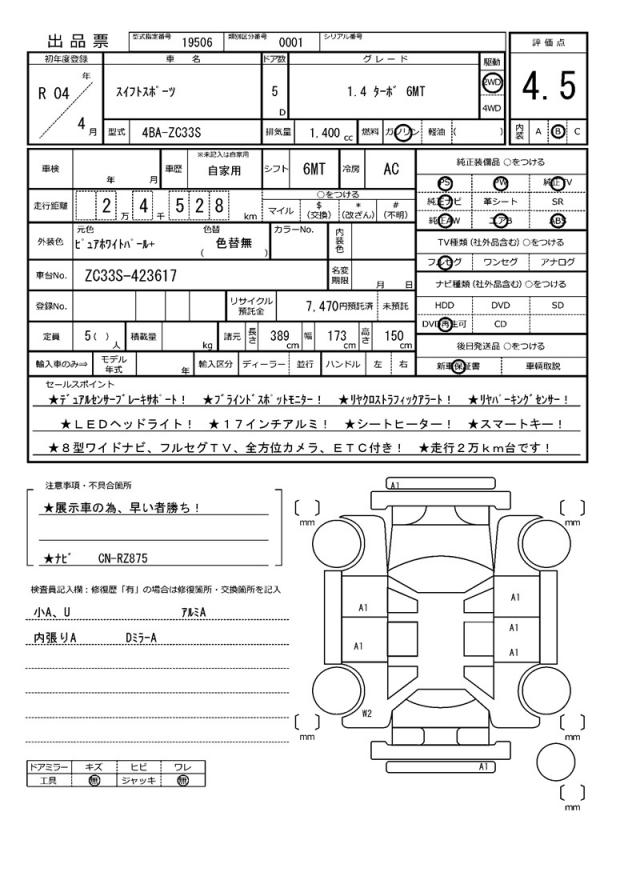 出品票 型式指定番号 19506 類別区分番号 0001 シリアル番号
評価点
4.5
内装 A B C
初年度登録 車名 ドア数 グレード 駆動
R 04 年 4 月
スイフトスポーツ 5 D 1.4 ターボ 6MT 2WD 4WD
型式 4BA-ZC33S 排気量 1.400 cc 燃料 ガソリン 軽油 ( )
車検 年 月 車歴 ※未記入は自家用 自家用 シフト 6MT 冷房 AC
走行距離 2 万 4 千 5 2 8 km ○をつける マイル $ (交換) * (改ざん) # (不明)
外装色 元色 ピュアホワイトパール+ 色替 ( 色替無 ) カラーNo. 内装色
車台No. ZC33S-423617 名変期限 月 日
登録No. リサイクル預託金 7,470円預託済 未預託
定員 5( ) 人 積載量 kg 諸元 長さ 389 cm 幅 173 cm 高さ 150 cm
輸入車のみ⇒ モデル年式 年 輸入区分 ディーラー 並行 ハンドル 左 右
純正装備品 ○をつける
PS PW 純正TV
純正ナビ 革シート SR
純正AW エアB ABS
TV種類 (社外品含む) ○をつける
フルセグ ワンセグ アナログ
ナビ種類 (社外品含む) ○をつける
HDD DVD SD
DVD再生可 CD
後日発送品 ○をつける
新車保証書 車輌取説
セールスポイント
★デュアルセンサーブレーキサポート! ★ブラインドスポットモニター! ★リヤクロストラフィックアラート! ★リヤパーキングセンサー!
★LEDヘッドライト! ★17インチアルミ! ★シートヒーター! ★スマートキー!
★8型ワイドナビ、フルセグTV、全方位カメラ、ETC付き! ★走行2万km台です!
注意事項・不具合箇所
★展示車の為、早い者勝ち!
★ナビ CN-RZ875
検査員記入欄:修復歴「有」の場合は修復箇所・交換箇所を記入
小A、U アルミA
内張りA DミラーA
ドアミラー キズ ヒビ ワレ
工具 無 ジャッキ 無
A1
mm mm
A1 A1
A1
A1 A1
W2
mm mm
A1
mm